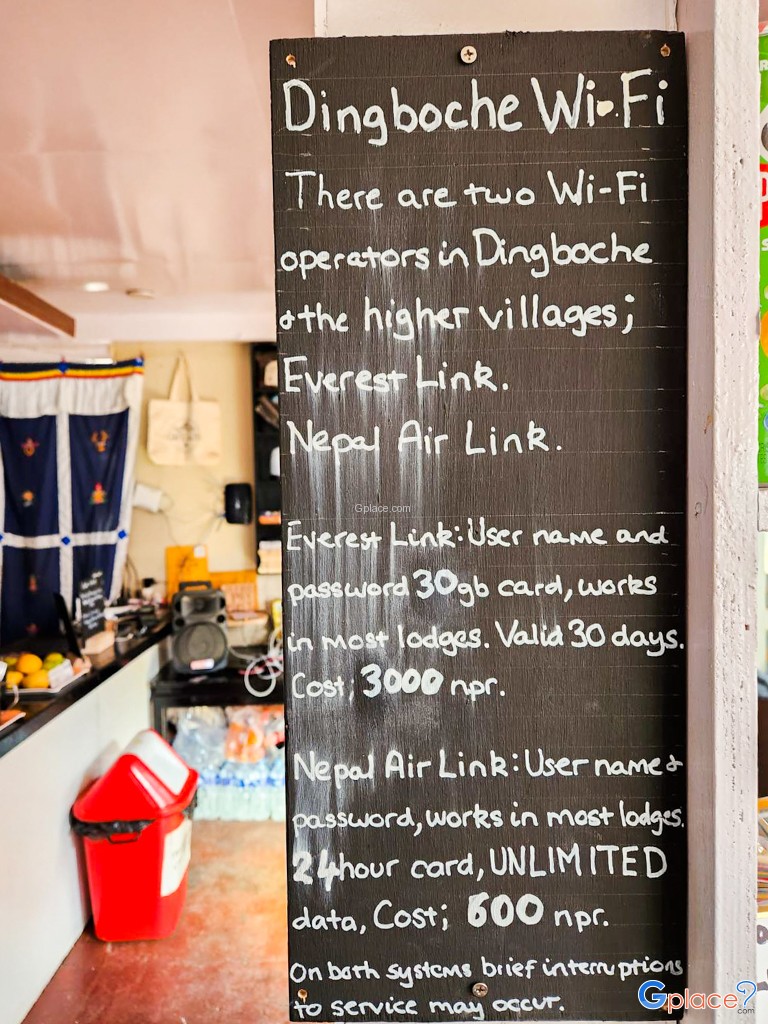 Dingboche Wi-Fi
There are two Wi-Fi
operators in Dingboche
& the higher villages;
Everest Link.
Nepal Air Link.
Gplace.com
Everest Link: User name and
password 30gb card, works
in most lodges. Valid 30 days.
Cost; 3000 npr.
Nepal Air Link: User name &
password, works in most lodges.
24hour card, UNLIMITED
data, Cost; 600 npr.
On both systems brief interruptions
to service may occur.
Gplace?.com